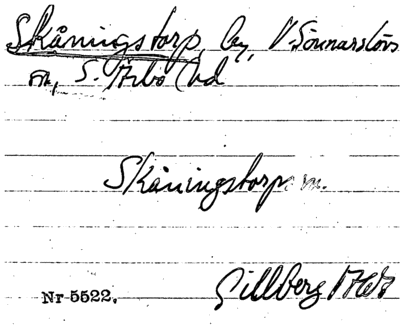 Skåningstorp, by, V. Sönnarslövs
sn, S. Åsbo hd
Skåningstorp
Nr 5522.
Gillberg